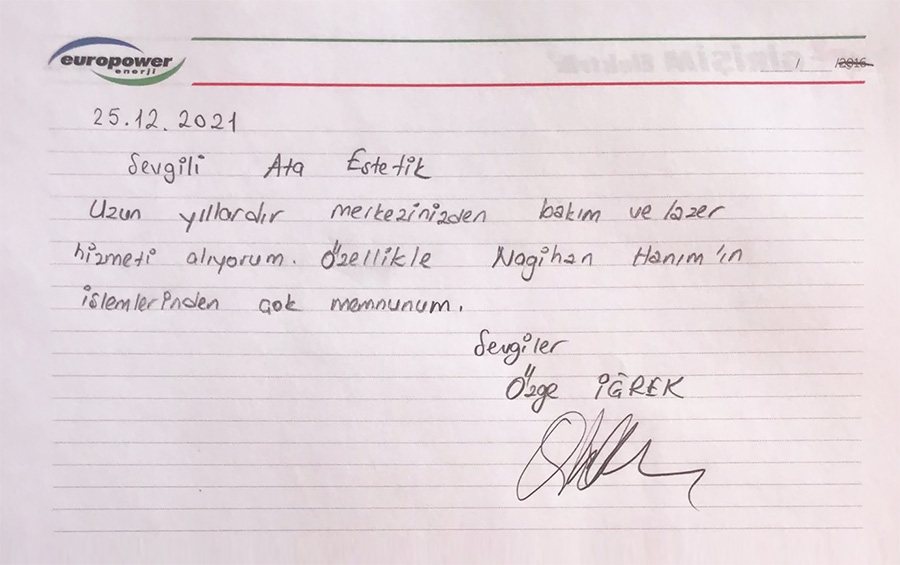 europower
enerji
/ /2016
25.12.2021
Sevgili Ata Estetik
Uzun yıllardır merkezinizden bakım ve lazer
hizmeti alıyorum. Özellikle Nagihan Hanım'ın
işlemlerinden çok memnunum.
Sevgiler
Özge İĞREK